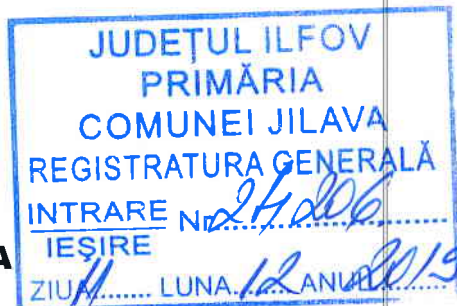 JUDEȚUL ILFOV
PRIMĂRIA
COMUNEI JILAVA
REGISTRATURA GENERALĂ
INTRARE Nr. 24.206
IEȘIRE
A
ZIUA 11 LUNA 12 ANUL 2019